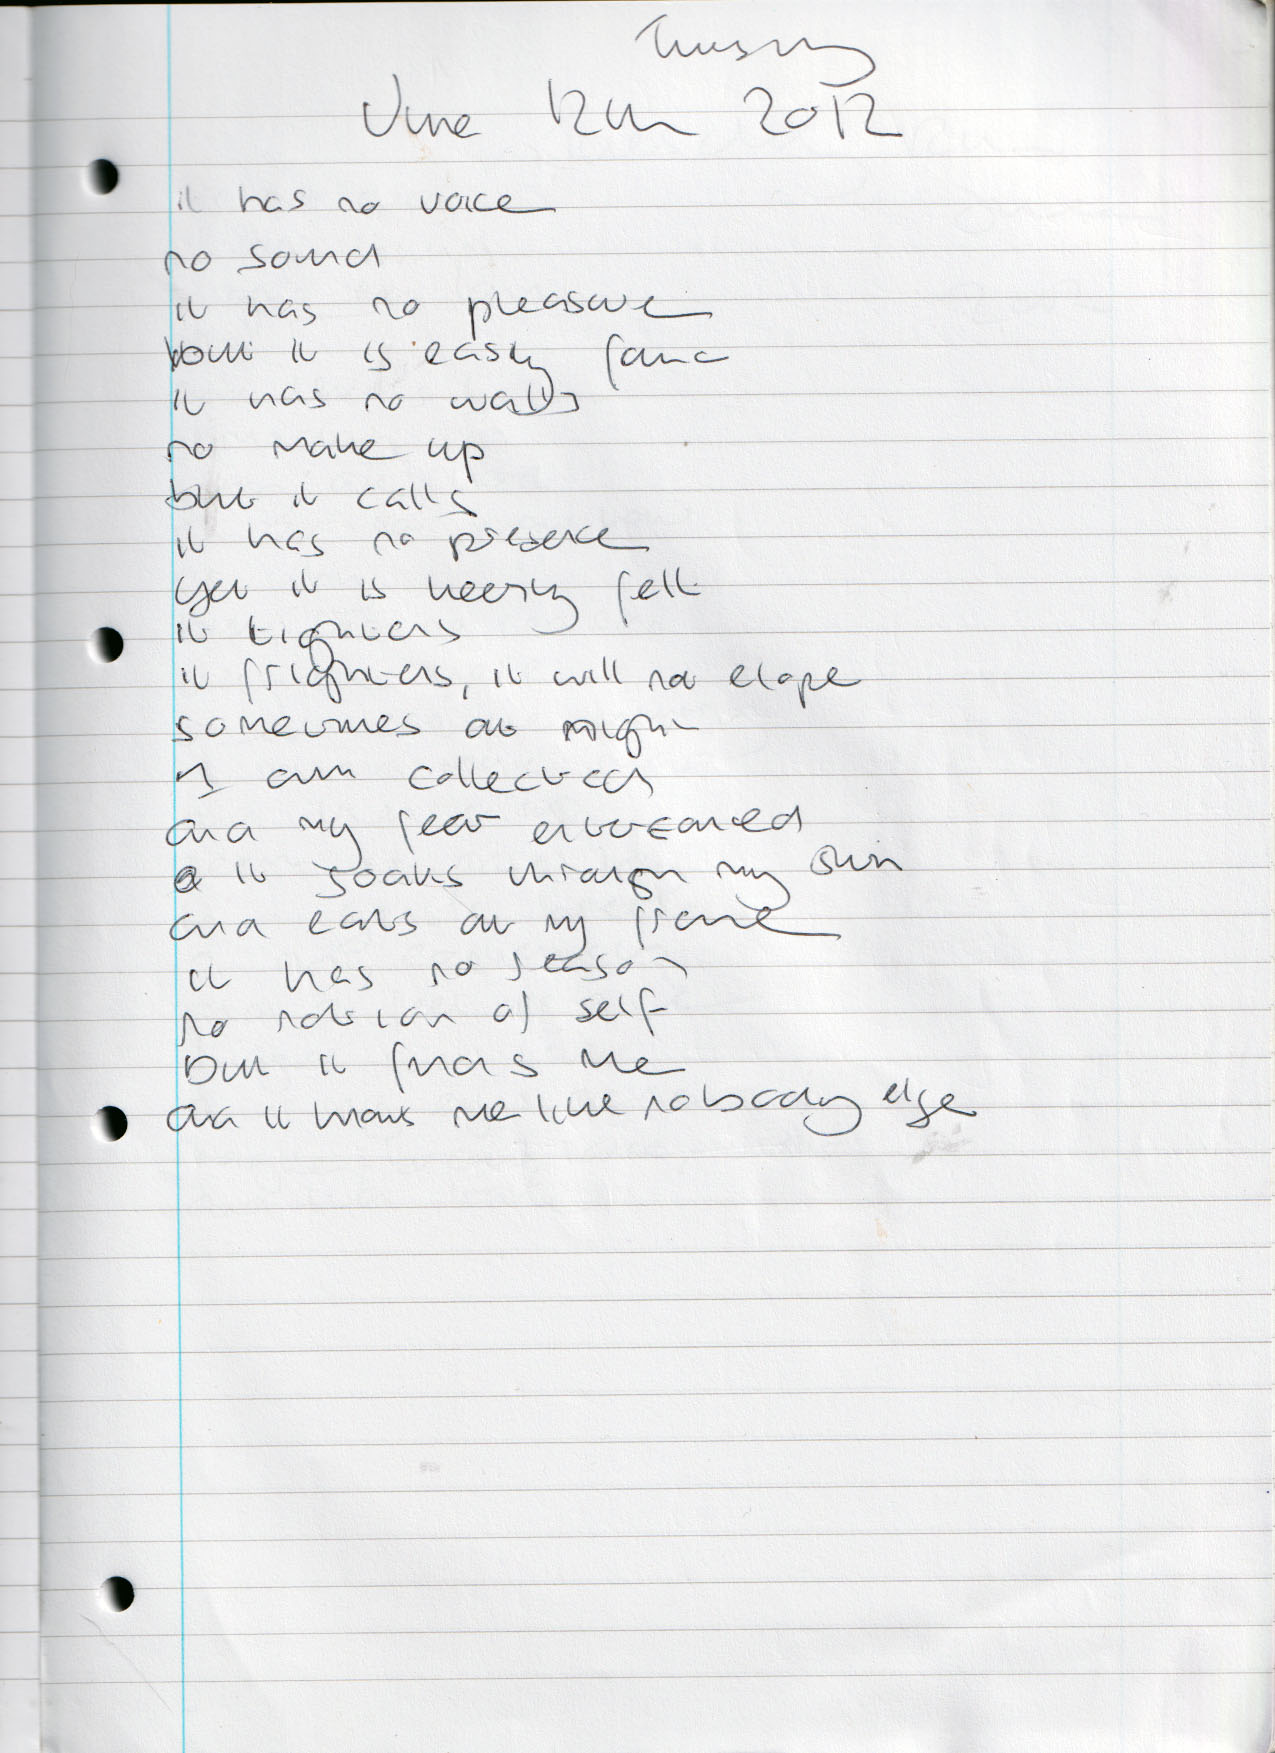 Tuesday
June 12th 2012
it has no voice
no sound
it has no pleasure
but it is easily found
it has no walls
no make up
but it calls
it has no presence
yet it is keenly felt
it tightens
it frightens, it will not elope
sometimes at night
I am collected
and my fear
it soaks through my skin
and eats at my frame
it has no reason
no notion of self
but it finds me
and it knows me like nobody else